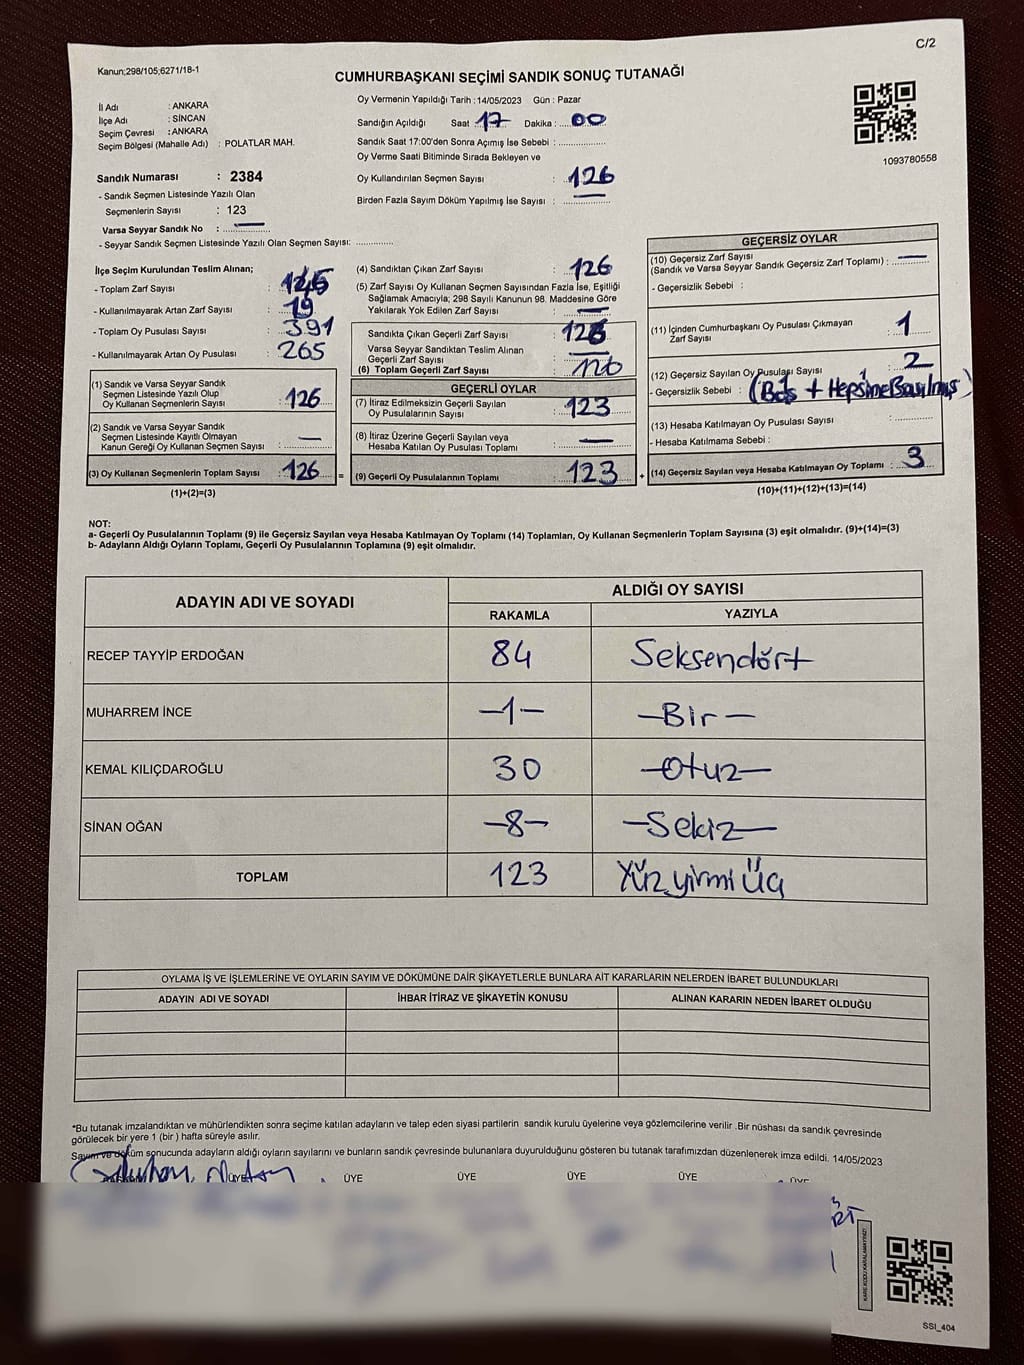 C/2
Kanun;298/105;6271/18-1
CUMHURBAŞKANI SEÇİMİ SANDIK SONUÇ TUTANAĞI
İl Adı : ANKARA
İlçe Adı : SİNCAN
Seçim Çevresi : ANKARA
Seçim Bölgesi (Mahalle Adı) : POLATLAR MAH.
Oy Vermenin Yapıldığı Tarih : 14/05/2023 Gün : Pazar
Sandığın Açıldığı Saat : 17 Dakika : 00
Sandık Saat 17:00'den Sonra Açımış İse Sebebi :
Oy Verme Saati Bitiminde Sırada Bekleyen ve
Oy Kullandırılan Seçmen Sayısı : 126
Birden Fazla Sayım Döküm Yapılmış İse Sayısı : —
1093780558
Sandık Numarası : 2384
- Sandık Seçmen Listesinde Yazılı Olan
Seçmenlerin Sayısı : 123
Varsa Seyyar Sandık No : —
- Seyyar Sandık Seçmen Listesinde Yazılı Olan Seçmen Sayısı:
İlçe Seçim Kurulundan Teslim Alınan;
- Toplam Zarf Sayısı :
- Kullanılmayarak Artan Zarf Sayısı : 19
- Toplam Oy Pusulası Sayısı : 391
- Kullanılmayarak Artan Oy Pusulası : 265
(1) Sandık ve Varsa Seyyar Sandık
Seçmen Listesinde Yazılı Olup
Oy Kullanan Seçmenlerin Sayısı : 126
(2) Sandık ve Varsa Seyyar Sandık
Seçmen Listesinde Kayıtlı Olmayan
Kanun Gereği Oy Kullanan Seçmen Sayısı : —
(3) Oy Kullanan Seçmenlerin Toplam Sayısı : 126 =
(1)+(2)=(3)
(4) Sandıktan Çıkan Zarf Sayısı : 126
(5) Zarf Sayısı Oy Kullanan Seçmen Sayısından Fazla İse, Eşitliği
Sağlamak Amacıyla; 298 Sayılı Kanunun 98. Maddesine Göre
Yakılarak Yok Edilen Zarf Sayısı : —
Sandıkta Çıkan Geçerli Zarf Sayısı : 126
Varsa Seyyar Sandıktan Teslim Alınan
Geçerli Zarf Sayısı : —
(6) Toplam Geçerli Zarf Sayısı : 126
GEÇERLİ OYLAR
(7) İtiraz Edilmeksizin Geçerli Sayılan
Oy Pusulalarının Sayısı : 123
(8) İtiraz Üzerine Geçerli Sayılan veya
Hesaba Katılan Oy Pusulası Toplamı : —
(9) Geçerli Oy Pusulalarının Toplamı : 123 +
GEÇERSİZ OYLAR
(10) Geçersiz Zarf Sayısı
(Sandık ve Varsa Seyyar Sandık Geçersiz Zarf Toplamı) : —
- Geçersizlik Sebebi :
(11) İçinden Cumhurbaşkanı Oy Pusulası Çıkmayan
Zarf Sayısı : 1
(12) Geçersiz Sayılan Oy Pusulası Sayısı : 2
- Geçersizlik Sebebi : (Boş + Hepsine Basılmış)
(13) Hesaba Katılmayan Oy Pusulası Sayısı :
- Hesaba Katılmama Sebebi :
(14) Geçersiz Sayılan veya Hesaba Katılmayan Oy Toplamı : 3
(10)+(11)+(12)+(13)=(14)
NOT:
a- Geçerli Oy Pusulalarının Toplamı (9) ile Geçersiz Sayılan veya Hesaba Katılmayan Oy Toplamı (14) Toplamları, Oy Kullanan Seçmenlerin Toplam Sayısına (3) eşit olmalıdır. (9)+(14)=(3)
b- Adayların Aldığı Oyların Toplamı, Geçerli Oy Pusulalarının Toplamına (9) eşit olmalıdır.
ADAYIN ADI VE SOYADI
ALDIĞI OY SAYISI
RAKAMLA YAZIYLA
RECEP TAYYİP ERDOĞAN 84 Seksendört
MUHARREM İNCE —1— —Bir—
KEMAL KILIÇDAROĞLU 30 —Otuz—
SİNAN OĞAN —8— —Sekiz—
TOPLAM 123 Yüz yirmi Üç
OYLAMA İŞ VE İŞLEMLERİNE VE OYLARIN SAYIM VE DÖKÜMÜNE DAİR ŞİKAYETLERLE BUNLARA AİT KARARLARIN NELERDEN İBARET BULUNDUKLARI
ADAYIN ADI VE SOYADI İHBAR İTİRAZ VE ŞİKAYETİN KONUSU ALINAN KARARIN NEDEN İBARET OLDUĞU
*Bu tutanak imzalandıktan ve mühürlendikten sonra seçime katılan adayların ve talep eden siyasi partilerin sandık kurulu üyelerine veya gözlemcilerine verilir .Bir nüshası da sandık çevresinde
görülecek bir yere 1 (bir ) hafta süreyle asılır.
Sayım ve döküm sonucunda adayların aldığı oyların sayılarını ve bunların sandık çevresinde bulunanlara duyurulduğunu gösteren bu tutanak tarafımızdan düzenlenerek imza edildi. 14/05/2023
ÜYE ÜYE ÜYE ÜYE ÜYE ÜYE
KARE KODU KARALAMAYINIZ!
SSI_404